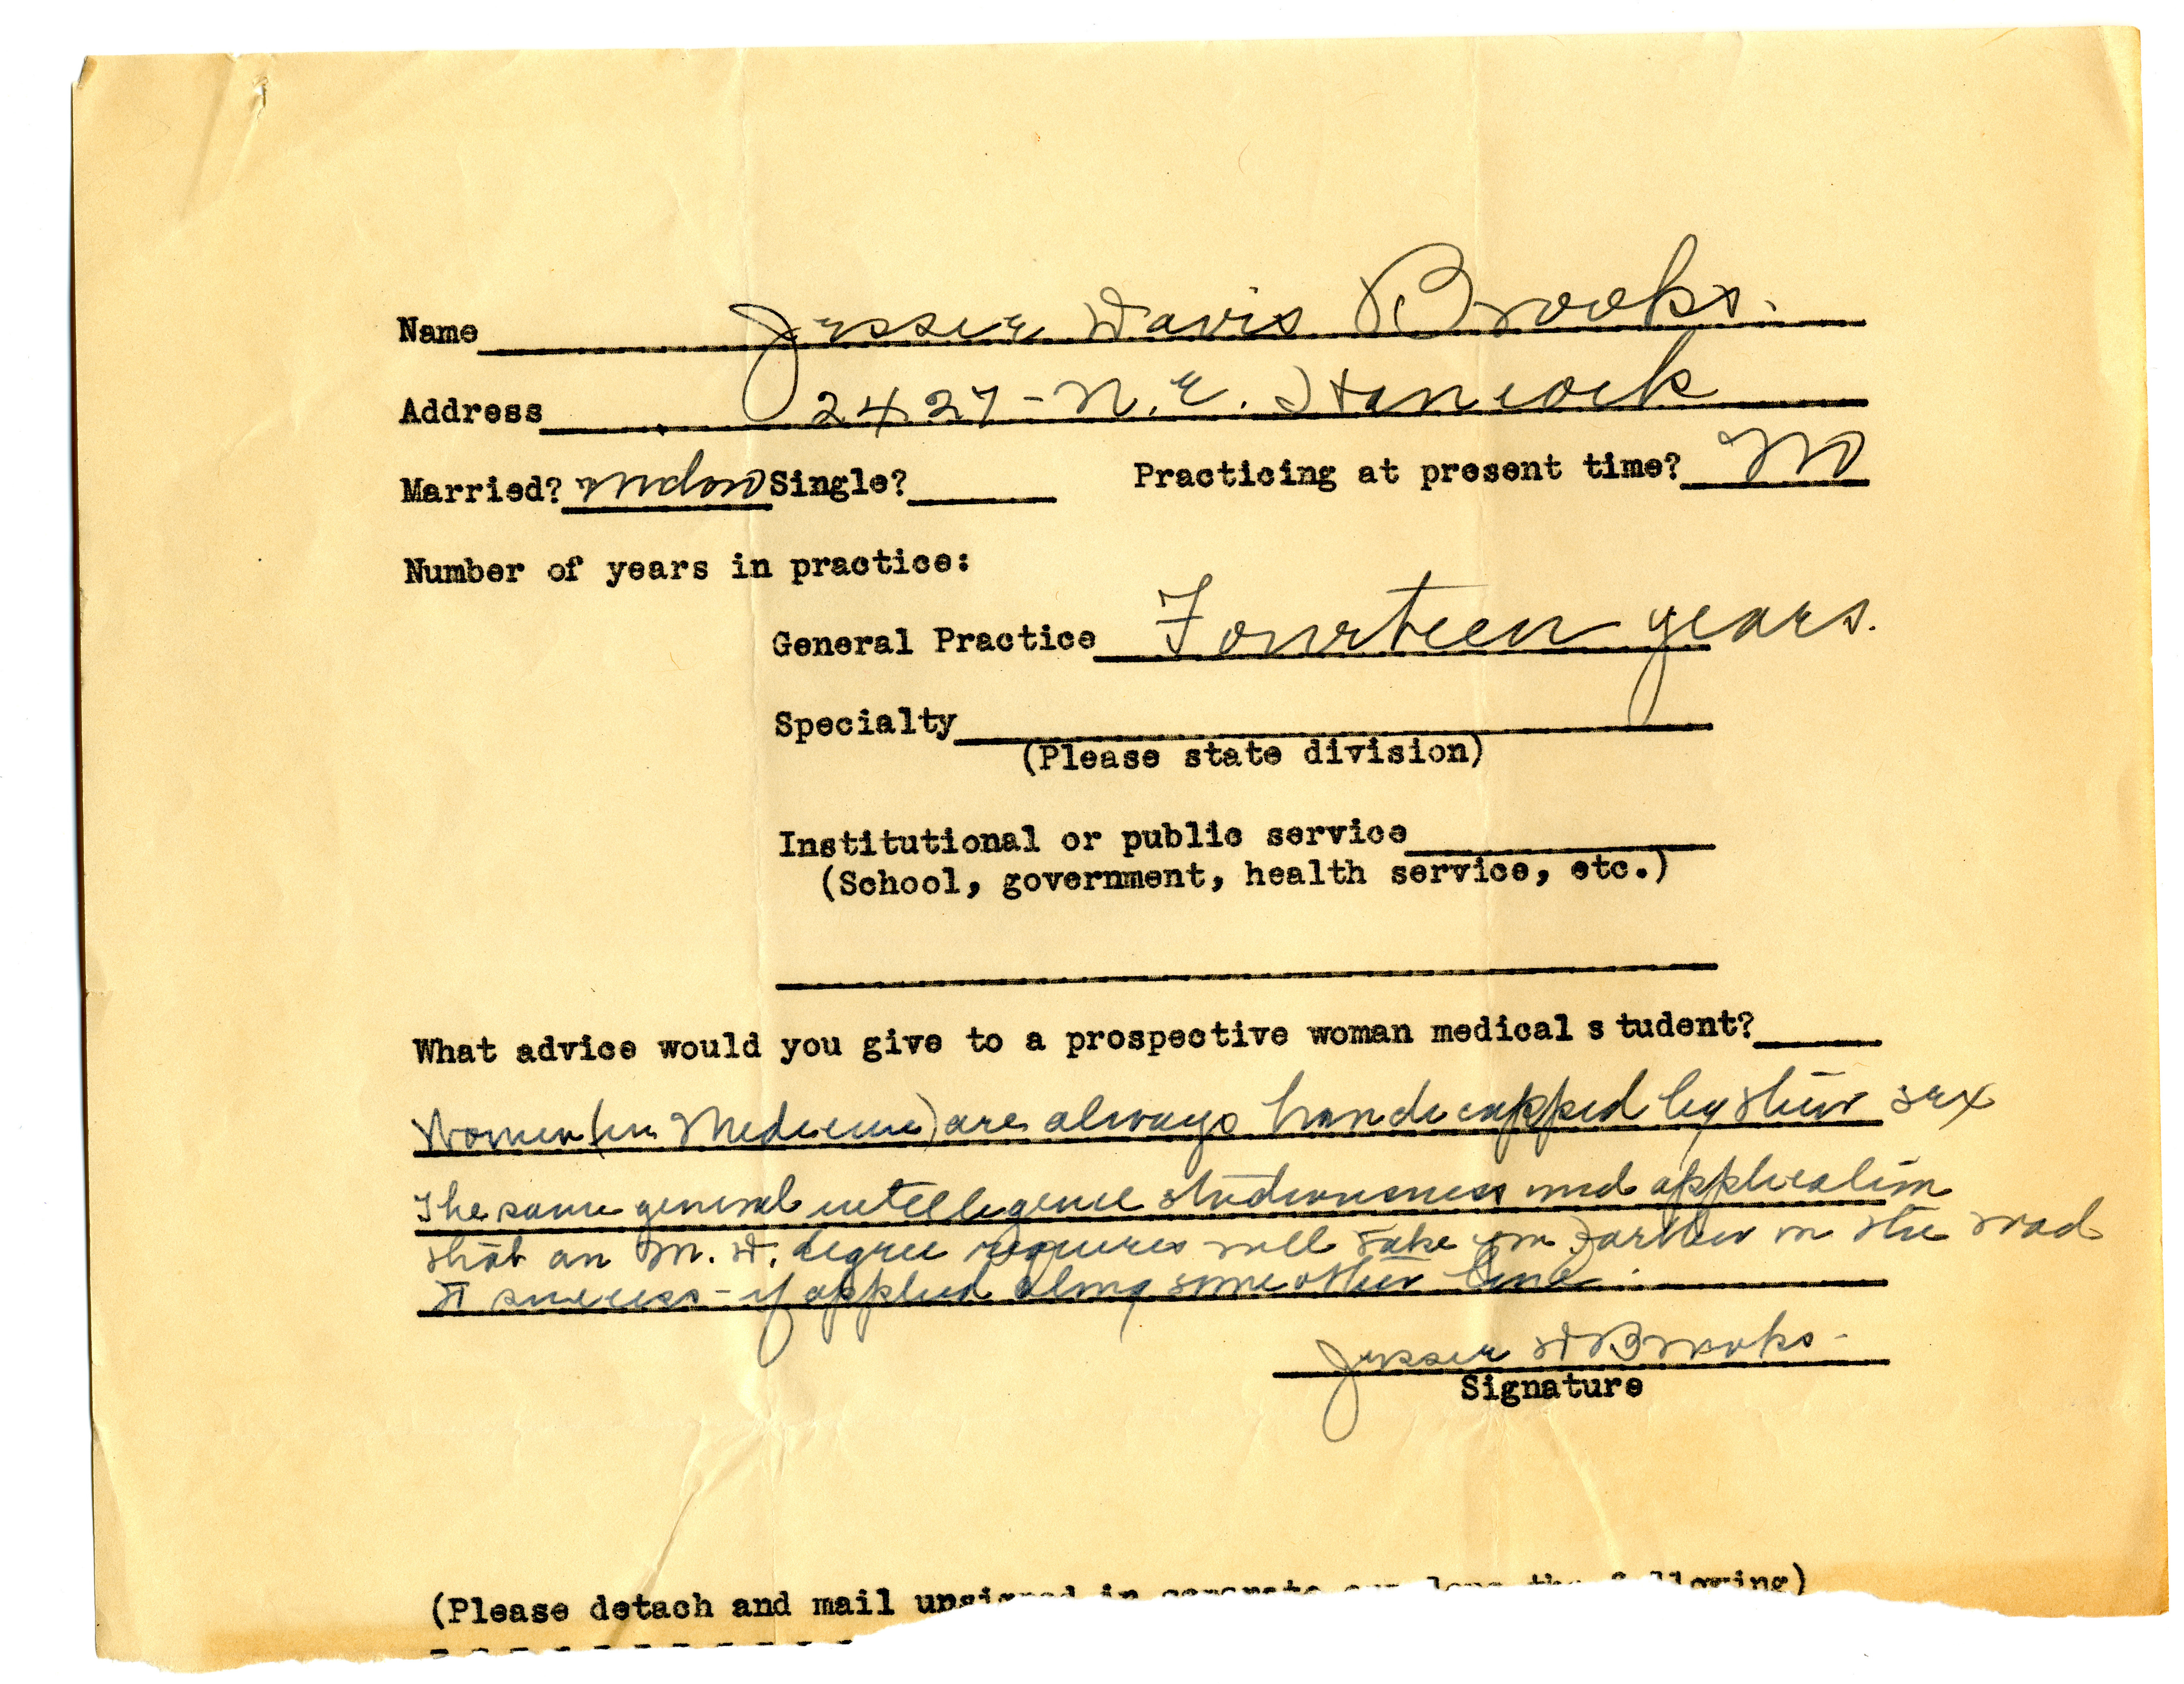 Name Jessie Davis Brooks.
Address 2427 - N.E. Hancock
Married? widow Single? Practicing at present time? No
Number of years in practice:
General Practice Fourteen years.
Specialty
(Please state division)
Institutional or public service
(School, government, health service, etc.)
What advice would you give to a prospective woman medical student?
Women (in Medicine) are always handicapped by their sex
The same general intelligence studiousness and application
that an M.D. degree requires will take you farther on the road
to success - if applied along some other line.
Jessie D Brooks.
Signature
(Please detach and mail unsigned in separate envelope the following)